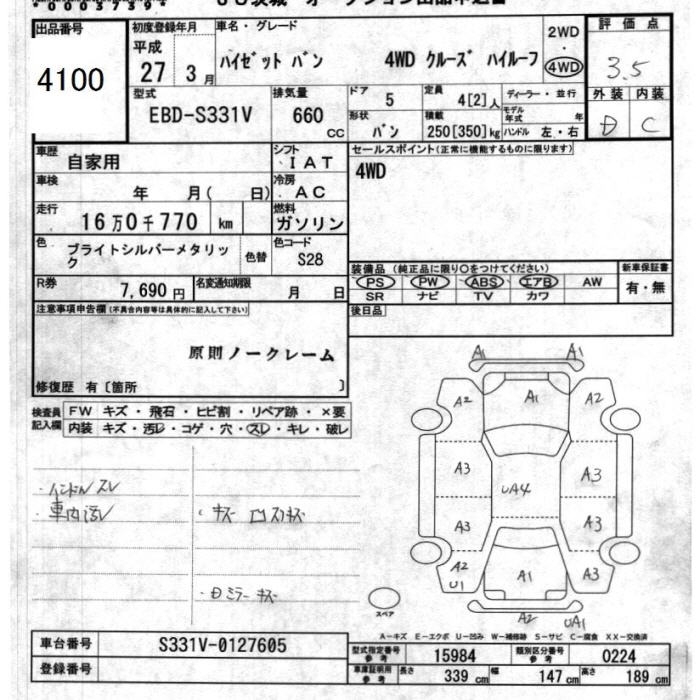 出品番号
4100
初度登録年月
平成
27 3月
車名・グレード
ハイゼット バン 4WD クルーズ ハイルーフ
2WD
・
4WD
評価点
3.5
外装 内装
D C
型式
EBD-S331V
排気量
660
cc
ドア
5
定員
4[2]人
形状
バン
積載
250[350]kg
ディーラー・並行
モデル
年式 年
ハンドル 左・右
車歴
自家用
シフト
IAT
車検
年 月( 日)
冷房
AC
走行
16万0千770 km
燃料
ガソリン
色
ブライトシルバーメタリック
色替
色コード
S28
R券
7,690円
名変通知期限
月 日
セールスポイント(正常に機能するものに限ります)
4WD
装備品 (純正品に限り○をつけてください)
PS PW ABS エアB AW
SR ナビ TV カワ
新車保証書
有・無
後日品
注意事項申告欄(不具合内容等は具体的に記入して下さい)
原則ノークレーム
修復歴 有〔箇所 〕
検査員
記入欄
FW キズ・飛石・ヒビ割・リペア跡・×要
内装 キズ・汚レ・コゲ・穴・スレ・キレ・破レ
・ハンドルスレ
・車内汚レ
・ミラーキズ
A1 A1
A2 A1 A2
A3 UA4 A3
A3 A3
A2 U1 A1 A3
A2 UA1
スペア
A-キズ E-エクボ U-凹み W-補修跡 S-サビ C-腐食 XX-交換済
車台番号
S331V-0127605
登録番号
型式指定番号
参考
15984
類別区分番号
参考
0224
車庫証明用
参考
長さ 339cm 幅 147cm 高さ 189cm